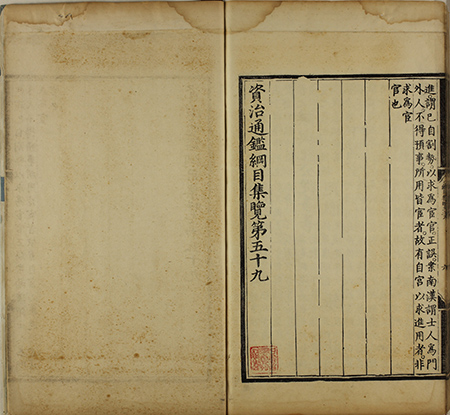 進謂已自割勢以求爲宦官正誤案南漢謂士人爲門
外人不得預事所用皆宦者故有自宮以求進用者非
求爲宦
官也
資治通鑑綱目集覽第五十九